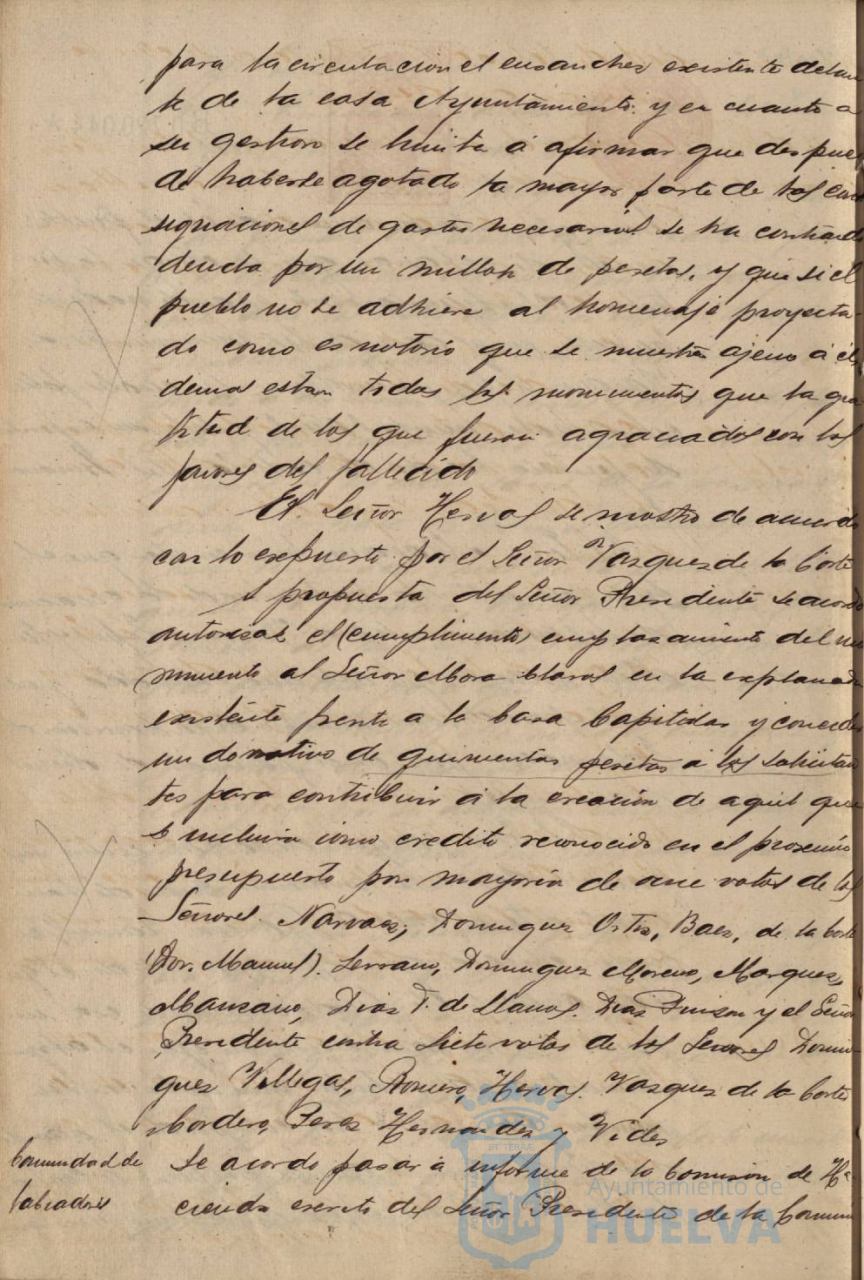 para la circulacion el ensanches existente delan
te de la casa Ayuntamiento: y en cuanto a
su gestion se limita á afirmar que despues
de haberse agotado la mayor parte de las con
signaciones de gastos necesarios se ha contraido
deuda por un millon de pesetas, y que si el
pueblo no se adhiere al homenaje proyecta-
do como es notorio que se muestra ajeno á él
demas estan todos los monumentos que la gra
titud de los que fueron agraciados con los
favores del fallecido
El Señor Hervas se mostro de acuerdo
con lo expuesto por el Señor Vazquez de la Corte
A propuesta del Señor Presidente se acordo
autorizar el (cumplimento) emplazamiento del mo
numento al Señor Mora Claros en la explanada
existente frente a la Casa Capitular y conceder
un donativo de quinientas pesetas á los solicitan
tes para contribuir á la creacion de aquel que
se incluira como credito reconocido en el proximo
presupuesto por mayoria de once votos de los
Señores Narvaez, Dominguez Ortiz, Baez, de la Corte
(Don Manuel). Serrano, Dominguez Moreno, Marquez,
Manzano, Diaz F. de Llanos. Diaz Pinzon y el Señor
Presidente contra siete votos de los Señores Domin-
guez Villegas, Romero, Hervas. Vazquez de la Corte
Cordero, Perez Hernandez y Vides
Comunidad de
Labradores
Se acordo pasar á informe de la Comision de Ha-
cienda escrito del Señor Presidente de la Comuni
Ayuntamiento de
HUELVA